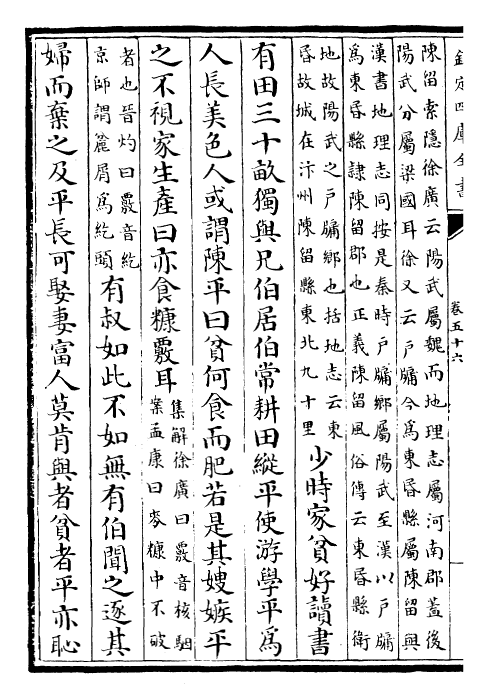 欽定四庫全書
卷五十六
陳留索隱徐廣云陽武屬魏而地理志屬河南郡蓋後
陽武分屬梁國耳徐又云戸牖今為東昬縣屬陳留與
漢書地理志同按是秦時戸牖鄉屬陽武至漢以戸牖
為東昬縣隸陳留郡也正義陳留風俗傳云東昬縣衛
地故陽武之戸牖鄉也括地志云東
昬故城在汴州陳留縣東北九十里
少時家貧好讀書
有田三十畝獨與兄伯居伯常耕田縱平使游學平為
人長美色人或謂陳平曰貧何食而肥若是其嫂嫉平
之不視家生產曰亦食糠覈耳
集解徐廣曰覈音核駰
案孟康曰麥糠中不破
者也晉灼曰覈音紇
京師謂麄屑為紇頭
有叔如此不如無有伯聞之逐其
婦而棄之及平長可娶妻富人莫肯與者貧者平亦恥